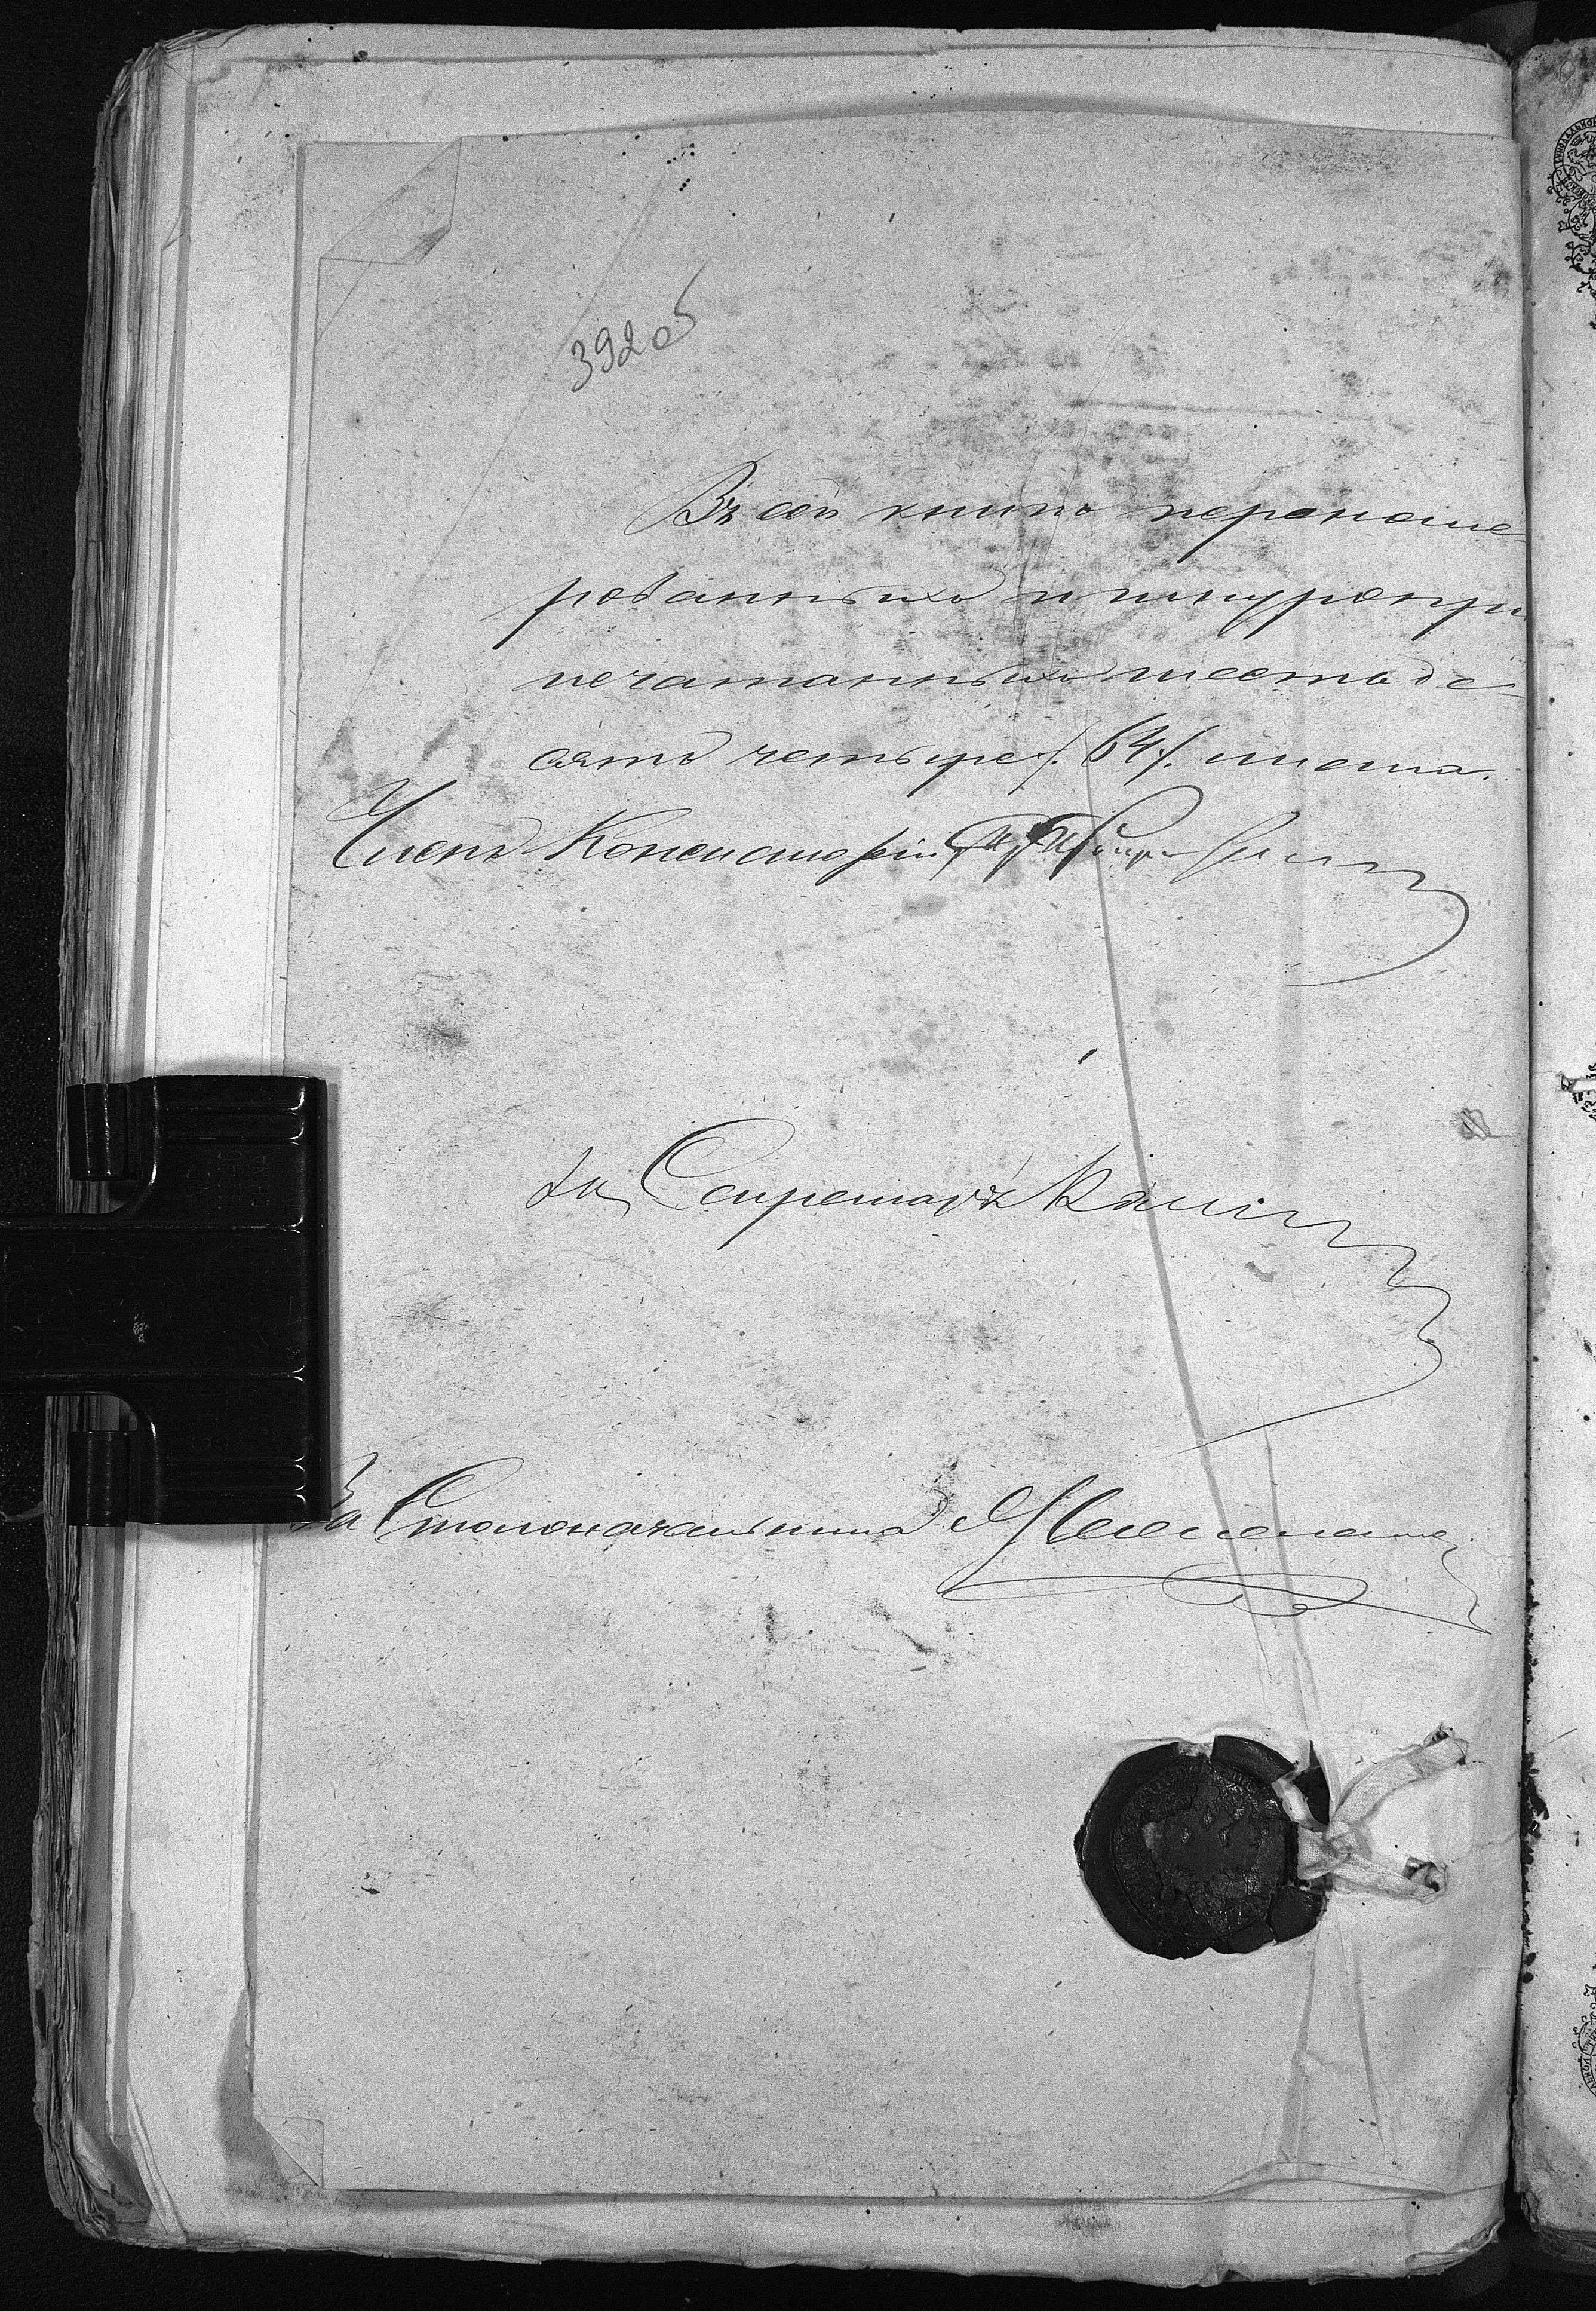 392об
Въ сей книгѣ перенуме-
рованныхъ и шнуропри
печатанныхъ шестьде-
сятъ четыре /. 64 /. листа.
Членъ Консисторіи
За Секретаря
За Столоначальника